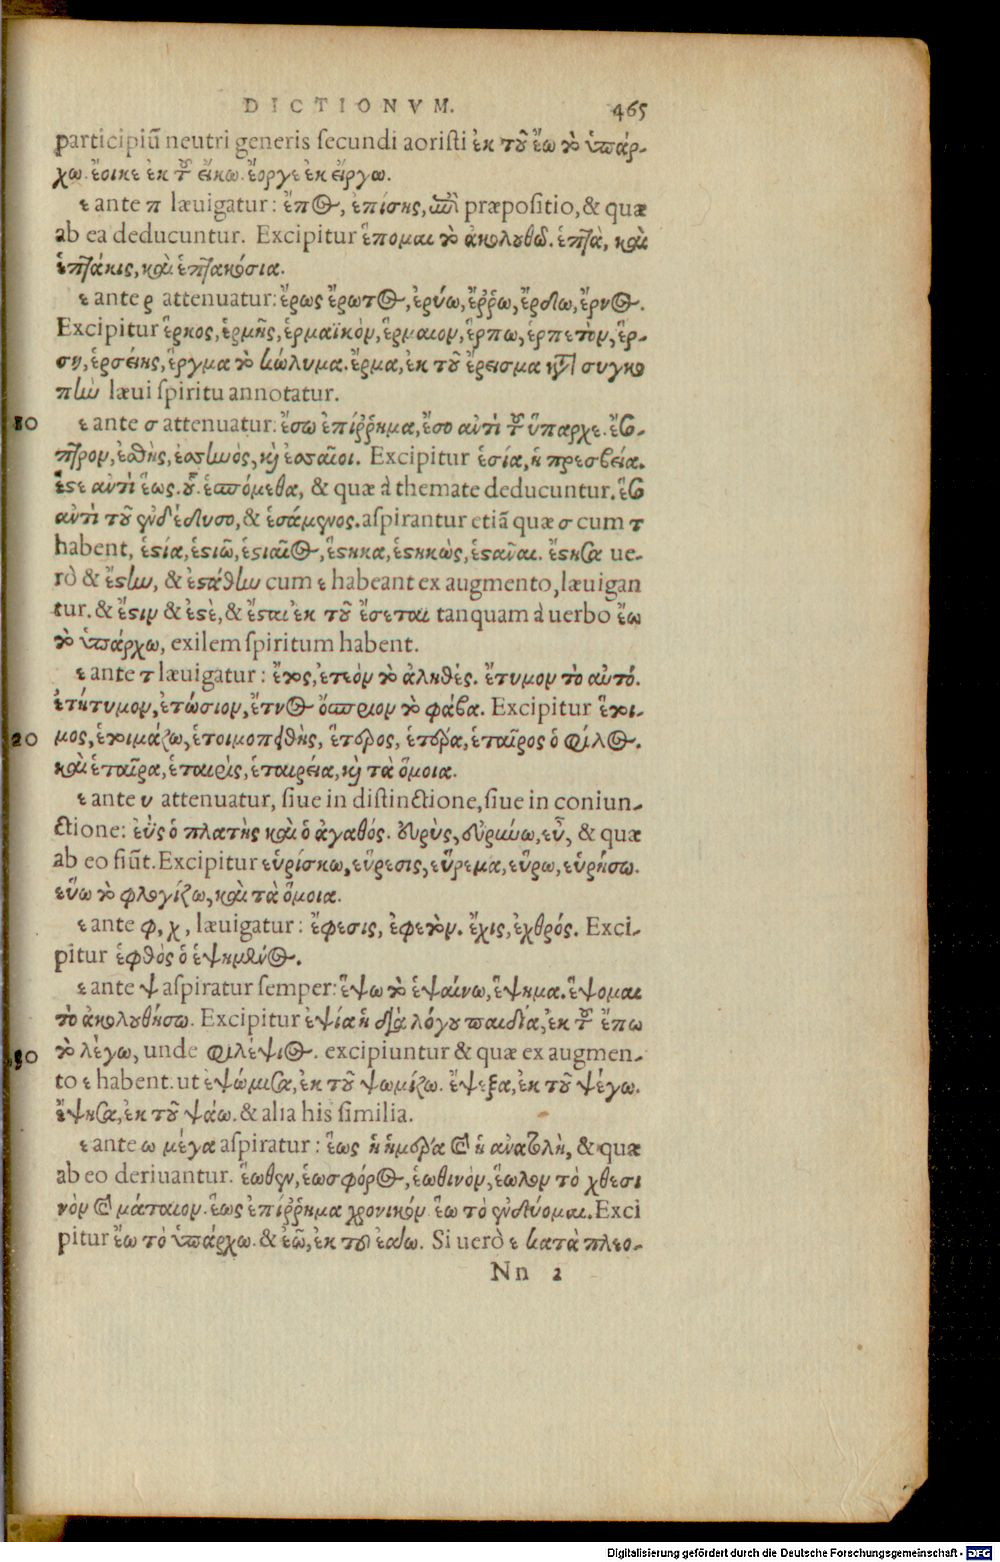 DICTIONVM. 465
participiũ neutri generis secundi aoristi ἐκ τοῦ ἔω τὸ ὑπάρ-
χω. ἔοικε ἐκ τοῦ εἴκω. ἔοργε ἐκ εἴργω.
ε ante π læuigatur: ἔπος, ἐπίσης, ἐπὶ præpositio, & quæ
ab ea deducuntur. Excipitur ἕπομαι τὸ ἀκολουθῶ. ἑπτὰ, καὶ
ἑπτάκις, καὶ ἑπτακόσια.
ε ante ρ attenuatur: ἔρως ἔρωτος, ἐρύω, ἔῤῥω, ἔρδω, ἔρνος.
Excipitur ἕρκος, ἑρμῆς, ἑρμαϊκὸν, ἕρμαιον, ἕρπω, ἑρπετὸν, ἕρ-
ση, ἑρσήεις, ἕργμα τὸ κώλυμα. ἔρμα, ἐκ τοῦ ἔρεισμα κατὰ συγκο
πὴν læui spiritu annotatur.
10 ε ante σ attenuatur. ἔσω ἐπίῤῥημα, ἔσο ἀντὶ τοῦ ὕπαρχε. ἔσ-
πτρον, ἐσθὴς, ἐσμὸς, καὶ ἐσσαῖοι. Excipitur ἑσία, ἡ πρεσβεία.
ἕστε ἀντὶ ἕως. οὗ. ἑσπόμεθα, & quæ à themate deducuntur. ἕσ
ἀντὶ τοῦ ἐνδέδυσο, & ἑσάμενος. aspirantur etiã quæ σ cum τ
habent, ἑστία, ἑστιῶ, ἑστιᾶτος, ἕστηκα, ἑστηκὼς, ἑστᾶναι. ἔστησα ue-
rò & ἔστων, & ἐστάθων cum ε habeant ex augmento, læuigan
tur. & ἔστιν & ἐστὲ, & ἔσται ἐκ τοῦ ἔσεται tanquam à uerbo ἔω
τὸ ὑπάρχω, exilem spiritum habent.
ε ante τ læuigatur: ἔτος, ἐτεὸν τὸ ἀληθές. ἔτυμον τὸ αὐτό.
ἐτήτυμον, ἐτώσιον, ἔτνος ὄσπριον τὸ φάβα. Excipitur ἕτοι-
20 μος, ἑτοιμάζω, ἑτοιμοπειθὴς, ἕτερος, ἑτέρα, ἑταῖρος ὁ φίλος.
καὶ ἑταῖρα, ἑταιρὶς, ἑταιρεία, καὶ τὰ ὅμοια.
ε ante υ attenuatur, siue in distinctione, siue in coniun-
ctione: ἐῢς ὁ πλατὴς καὶ ὁ ἀγαθός. εὐρὺς, εὐρύνω, εὖ, & quæ
ab eo fiũt. Excipitur εὑρίσκω, εὕρεσις, εὕρεμα, εὕρω, εὑρήσω.
εὕω τὸ φλογίζω, καὶ τὰ ὅμοια.
ε ante φ, χ, læuigatur: ἔφεσις, ἐφετὸν. ἔχις, ἐχθρός. Exci-
pitur ἑφθὸς ὁ ἑψημένος.
ε ante ψ aspiratur semper: ἕψω τὸ ἑψαίνω, ἕψημα. ἕψομαι
τὸ ἀκολουθήσω. Excipitur ἐψία ἡ διὰ λόγου παιδία, ἐκ τοῦ ἔπω
30 τὸ λέγω, unde φιλέψιος. excipiuntur & quæ ex augmen-
to ε habent. ut ἐψώμισα, ἐκ τοῦ ψωμίζω. ἔψεξα, ἐκ τοῦ ψέγω.
ἔψησα, ἐκ τοῦ ψάω. & alia his similia.
ε ante ω μέγα aspiratur: ἕως ἡ ἡμέρα καὶ ἡ ἀνατολὴ, & quæ
ab eo deriuantur. ἕωθεν, ἑωσφόρος, ἑωθινὸν, ἕωλον τὸ χθεσι
νὸν καὶ μάταιον. ἕως ἐπίῤῥημα χρονικόν. ἕω τὸ ἐνδύομαι. Exci
pitur ἔω τὸ ὑπάρχω. & ἐῶ, ἐκ τοῦ ἐάω. Si uerò ε κατὰ πλεο-
Nn 2
Digitalisierung gefördert durch die Deutsche Forschungsgemeinschaft - DFG